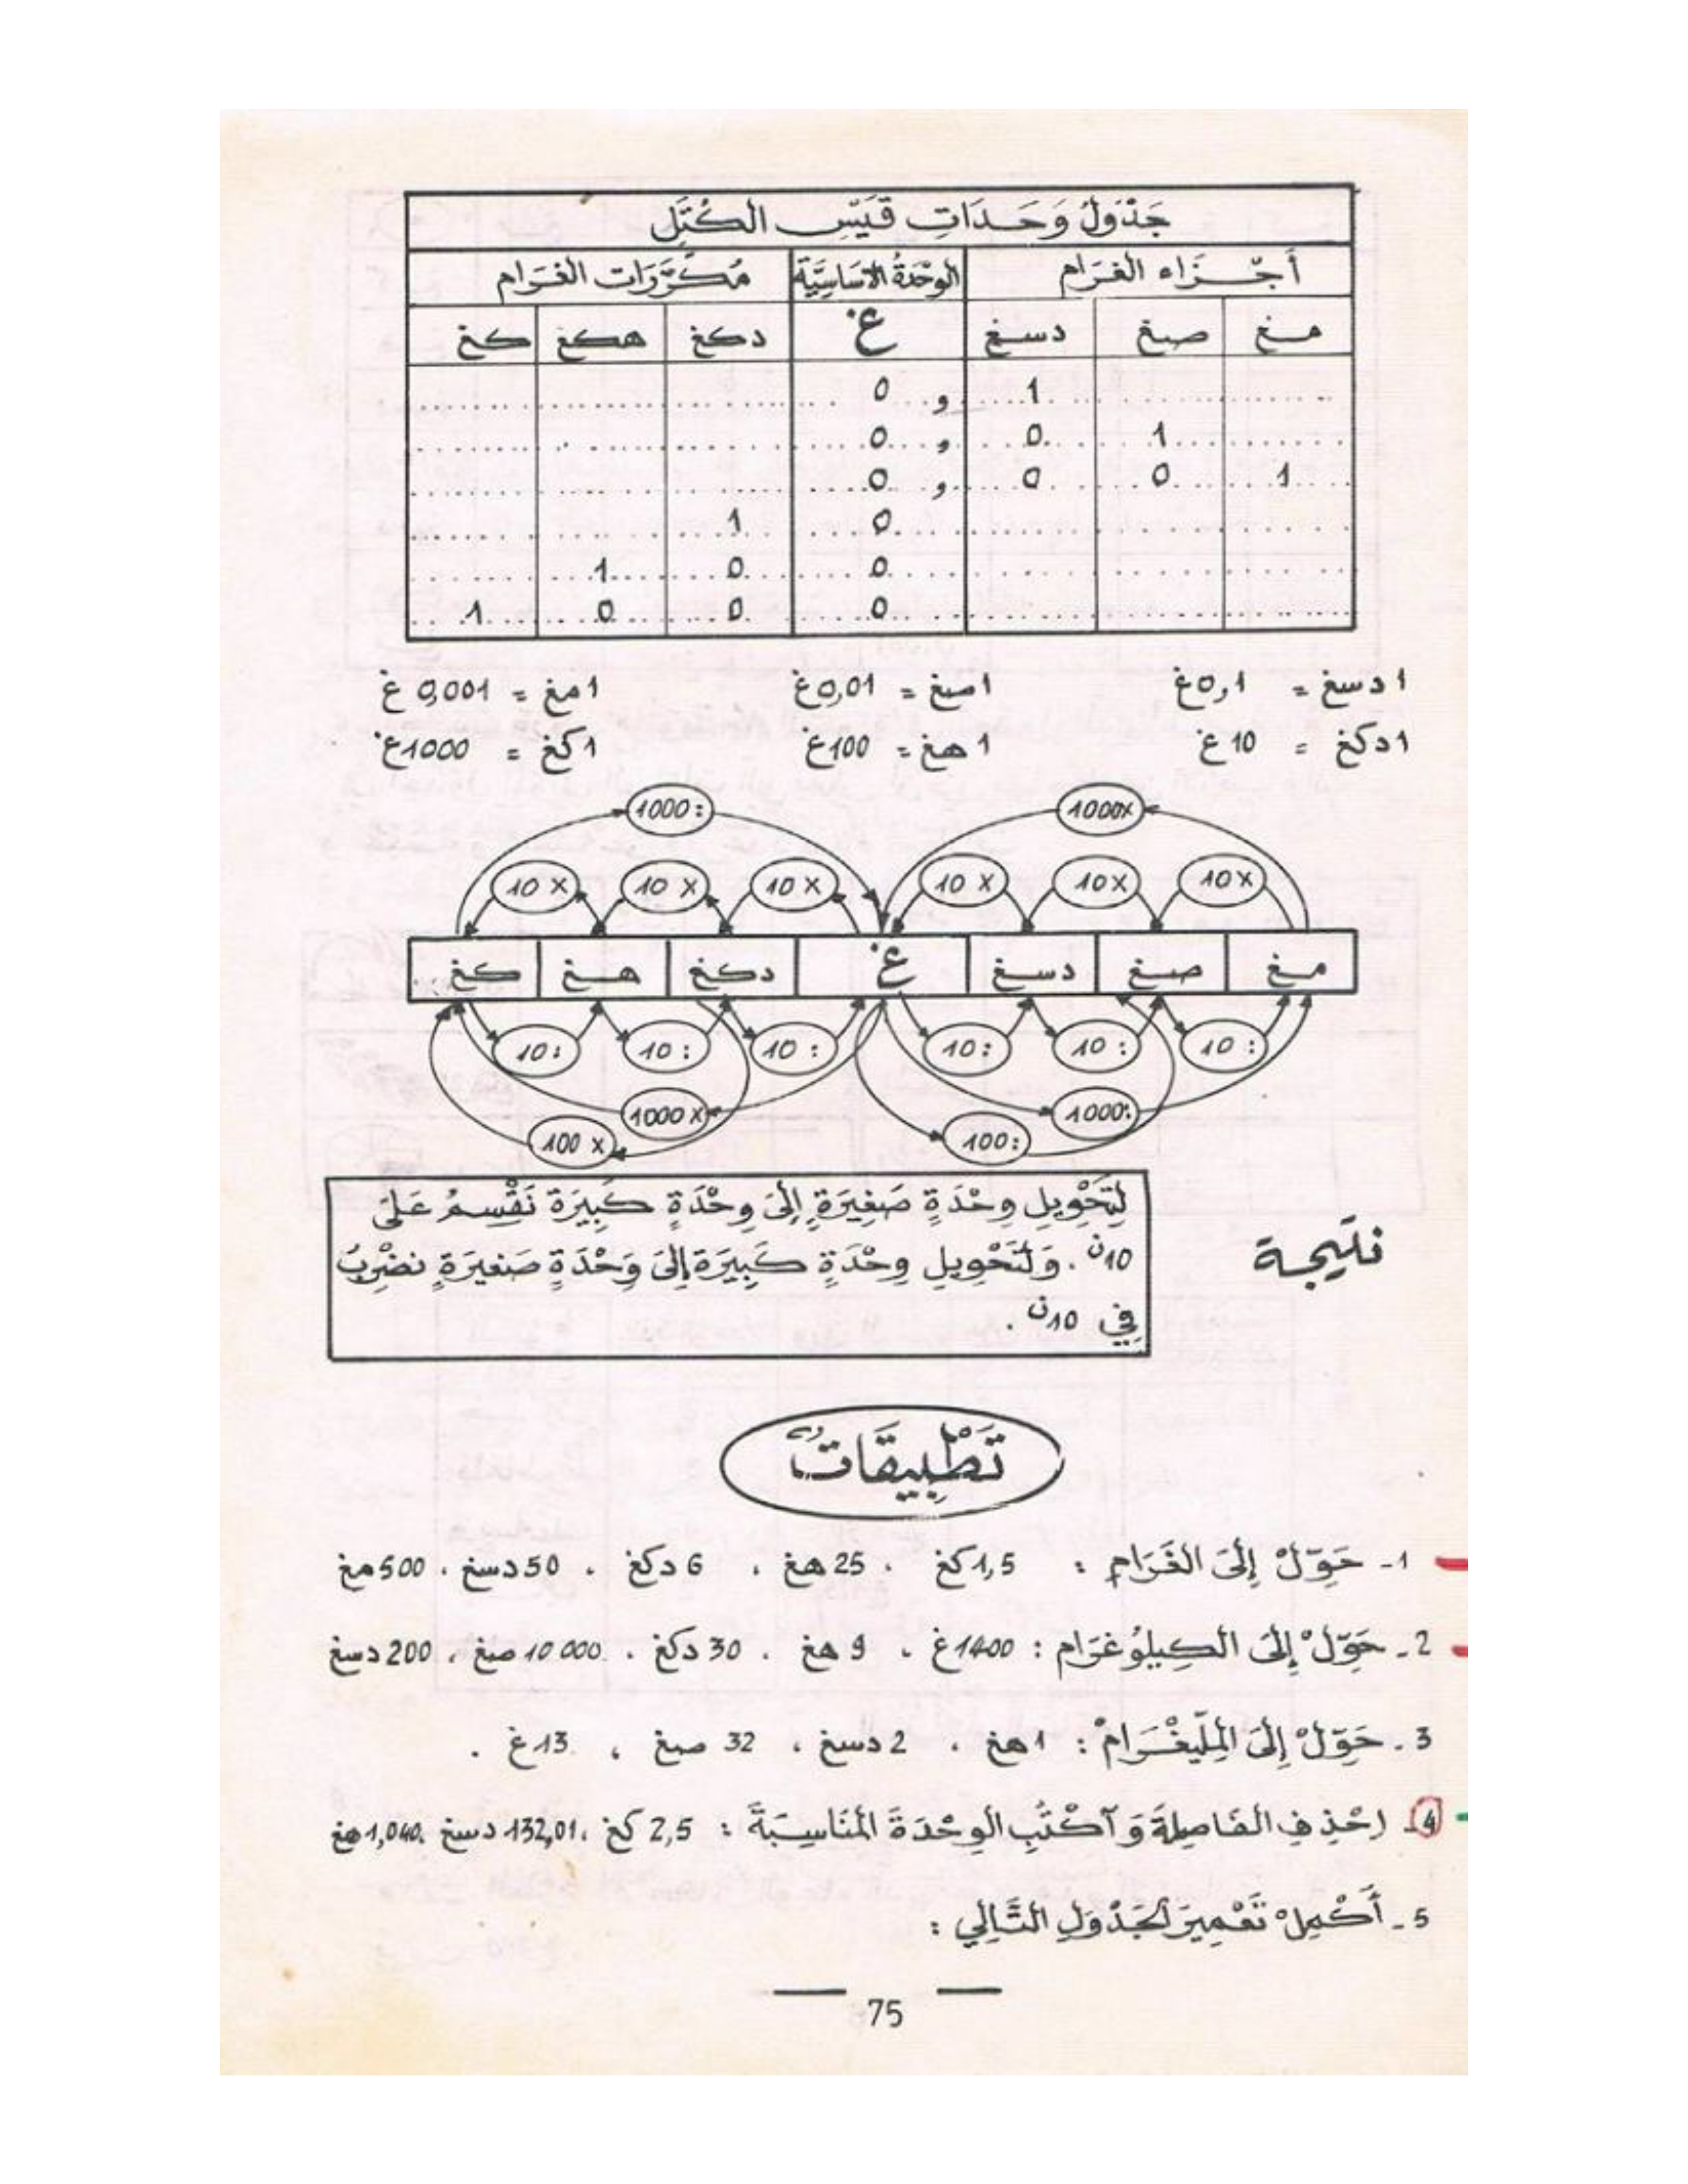 جَدْوَلُ وَحَدَاتِ قَيْسِ الكُتَلِ
أَجْزَاء الغرَام الوَحْدَةُ الأسَاسِيَّة مُكَرَّرَات الغرَام
مغ صغ دسغ غ دكغ هكغ كغ
0 و 1
0 و 0 1
0 و 0 0 1
1 0
1 0 0
1 0 0 0
1 دسغ = 0,1 غ 1 صغ = 0,01 غ 1 مغ = 0,001 غ
1 دكغ = 10 غ 1 هغ = 100 غ 1 كغ = 1000 غ
1000 : 1000x
10 x 10 x 10 x 10 x 10x 10x
كغ هغ دكغ غ دسغ صغ مغ
10 : 10 : 10 : 10 : 10 : 10 :
1000 x 1000:
100 x 100:
لِتَحْوِيلِ وِحْدَةٍ صَغِيرَةٍ إِلَى وِحْدَةٍ كَبِيرَة نَقْسِمُ عَلَى
10ن . وَلتَحْوِيلِ وِحْدَةٍ كَبِيرَة إِلَى وَحْدَةٍ صَغيرَةٍ نضْرِبُ
فِي 10ن .
نتيجة
تَطْبِيقَاتٌ
1- حَوِّلْ إِلَى الغَرَامِ : 1,5 كغ ، 25 هغ ، 6 دكغ ، 50 دسغ ، 500 مغ
2- حَوِّلْ إِلَى الكِيلُوغرَام : 1400 غ ، 9 هغ ، 30 دكغ ، 10 000 صغ ، 200 دسغ
3- حَوِّلْ إِلَى المِلِّيغْرَامْ : 1 هغ ، 2 دسغ ، 32 صغ ، 13 غ .
4- احْذِفِ الفَاصِلَةَ وَآكْتُبِ الوِحْدَةَ المُنَاسِبَةَ : 2,5 كغ ، 132,01 دسغ ، 1,040 هغ
5- أَكْمِلْ تَعْمِيرَ الجَدْوَلِ التَّالِي :
75